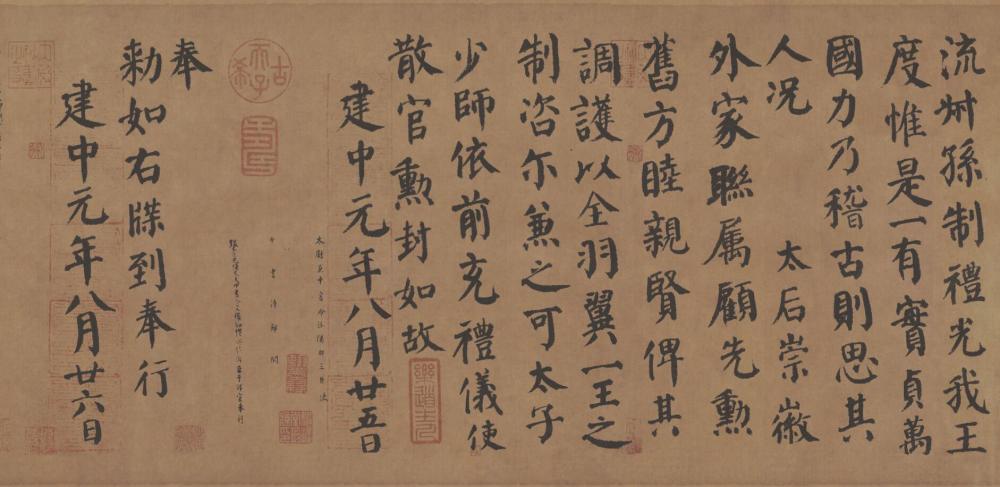 流叶孫制禮光我王
度惟是一有實貞萬
國力乃稽古則思其
人况 太后崇徽
外家聯属顧先勲
舊方睦親賢俾其
調護以全羽翼一王之
制咨尔兼之可太子
少師依前充禮儀使
散官勲封如故
建中元年八月廿五日
太尉兼中書令汾陽郡王
奉
勑如右牒到奉行
建中元年八月廿六日